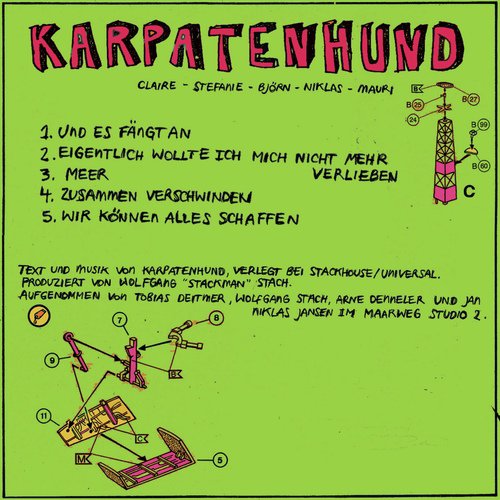 KARPATENHUND
CLAIRE - STEFANIE - BJÖRN - NIKLAS - MAURI
1. UND ES FÄNGT AN
2. EIGENTLICH WOLLTE ICH MICH NICHT MEHR
VERLIEBEN
3. MEER
4. ZUSAMMEN VERSCHWINDEN
5. WIR KÖNNEN ALLES SCHAFFEN
B
B 25
B 27
24
B 99
B 60
C
TEXT UND MUSIK VON KARPATENHUND, VERLEGT BEI STACKHOUSE/UNIVERSAL.
PRODUZIERT VON WOLFGANG "STACKMAN" STACH.
AUFGENOMMEN VON TOBIAS DETTMER, WOLFGANG STACH, ARNE DENNELER UND JAN
NIKLAS JANSEN IM MAARWEG STUDIO 2.
7
8
9
B
11
C
M
5